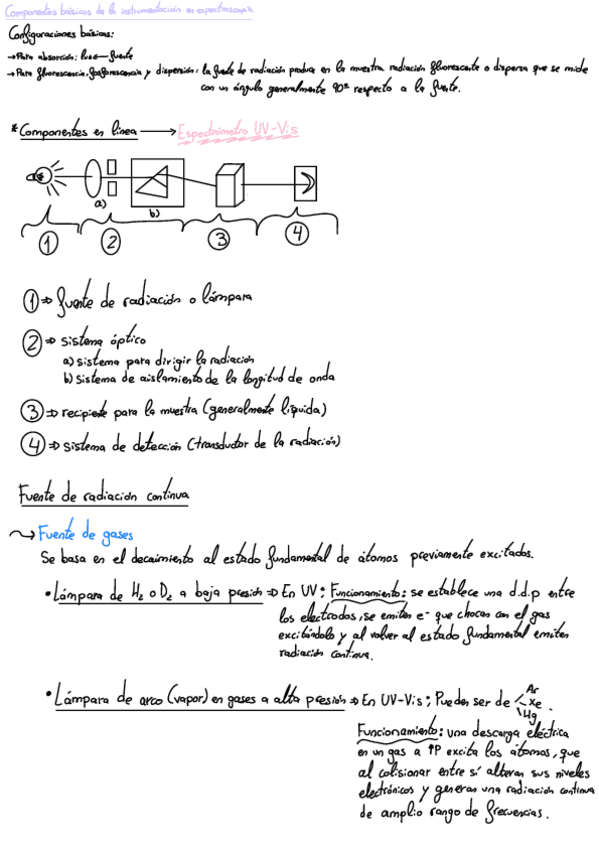 Componentes básicos de la instrumentación en espectroscopia
Configuraciones básicas:
→Para absorción: fuente
→Para fluorescencia, fosforescencia y dispersión: la fuente de radiación produce en la muestra radiación fluorescente o dispersa que se mide
con un ángulo generalmente 90º respecto a la fuente.
*Componentes en línea → Espectrómetro UV-Vis
a)
b)
1 2 3 4
1 ⇒ fuente de radiación o lámpara
2 ⇒ sistema óptico
a) sistema para dirigir la radiación
b) sistema de aislamiento de la longitud de onda
3 ⇒ recipiente para la muestra (generalmente líquida)
4 ⇒ sistema de detección (transductor de la radiación)
Fuente de radiación continua
Fuente de gases
Se basa en el decaimiento al estado fundamental de átomos previamente excitados.
• Lámpara de H2 o D2 a baja presión ⇒ En UV; Funcionamiento: se establece una d.d.p entre
los electrodos, se emiten e- que chocan con el gas
excitándolo y al volver al estado fundamental emiten
radiación continua.
• Lámpara de arco (vapor) en gases a alta presión ⇒ En UV-Vis; Pueden ser de Ar Xe Hg.
Funcionamiento: una descarga eléctrica
en un gas a ↑P excita los átomos, que
al colisionar entre sí alteran sus niveles
electrónicos y generan una radiación continua
de amplio rango de frecuencias.